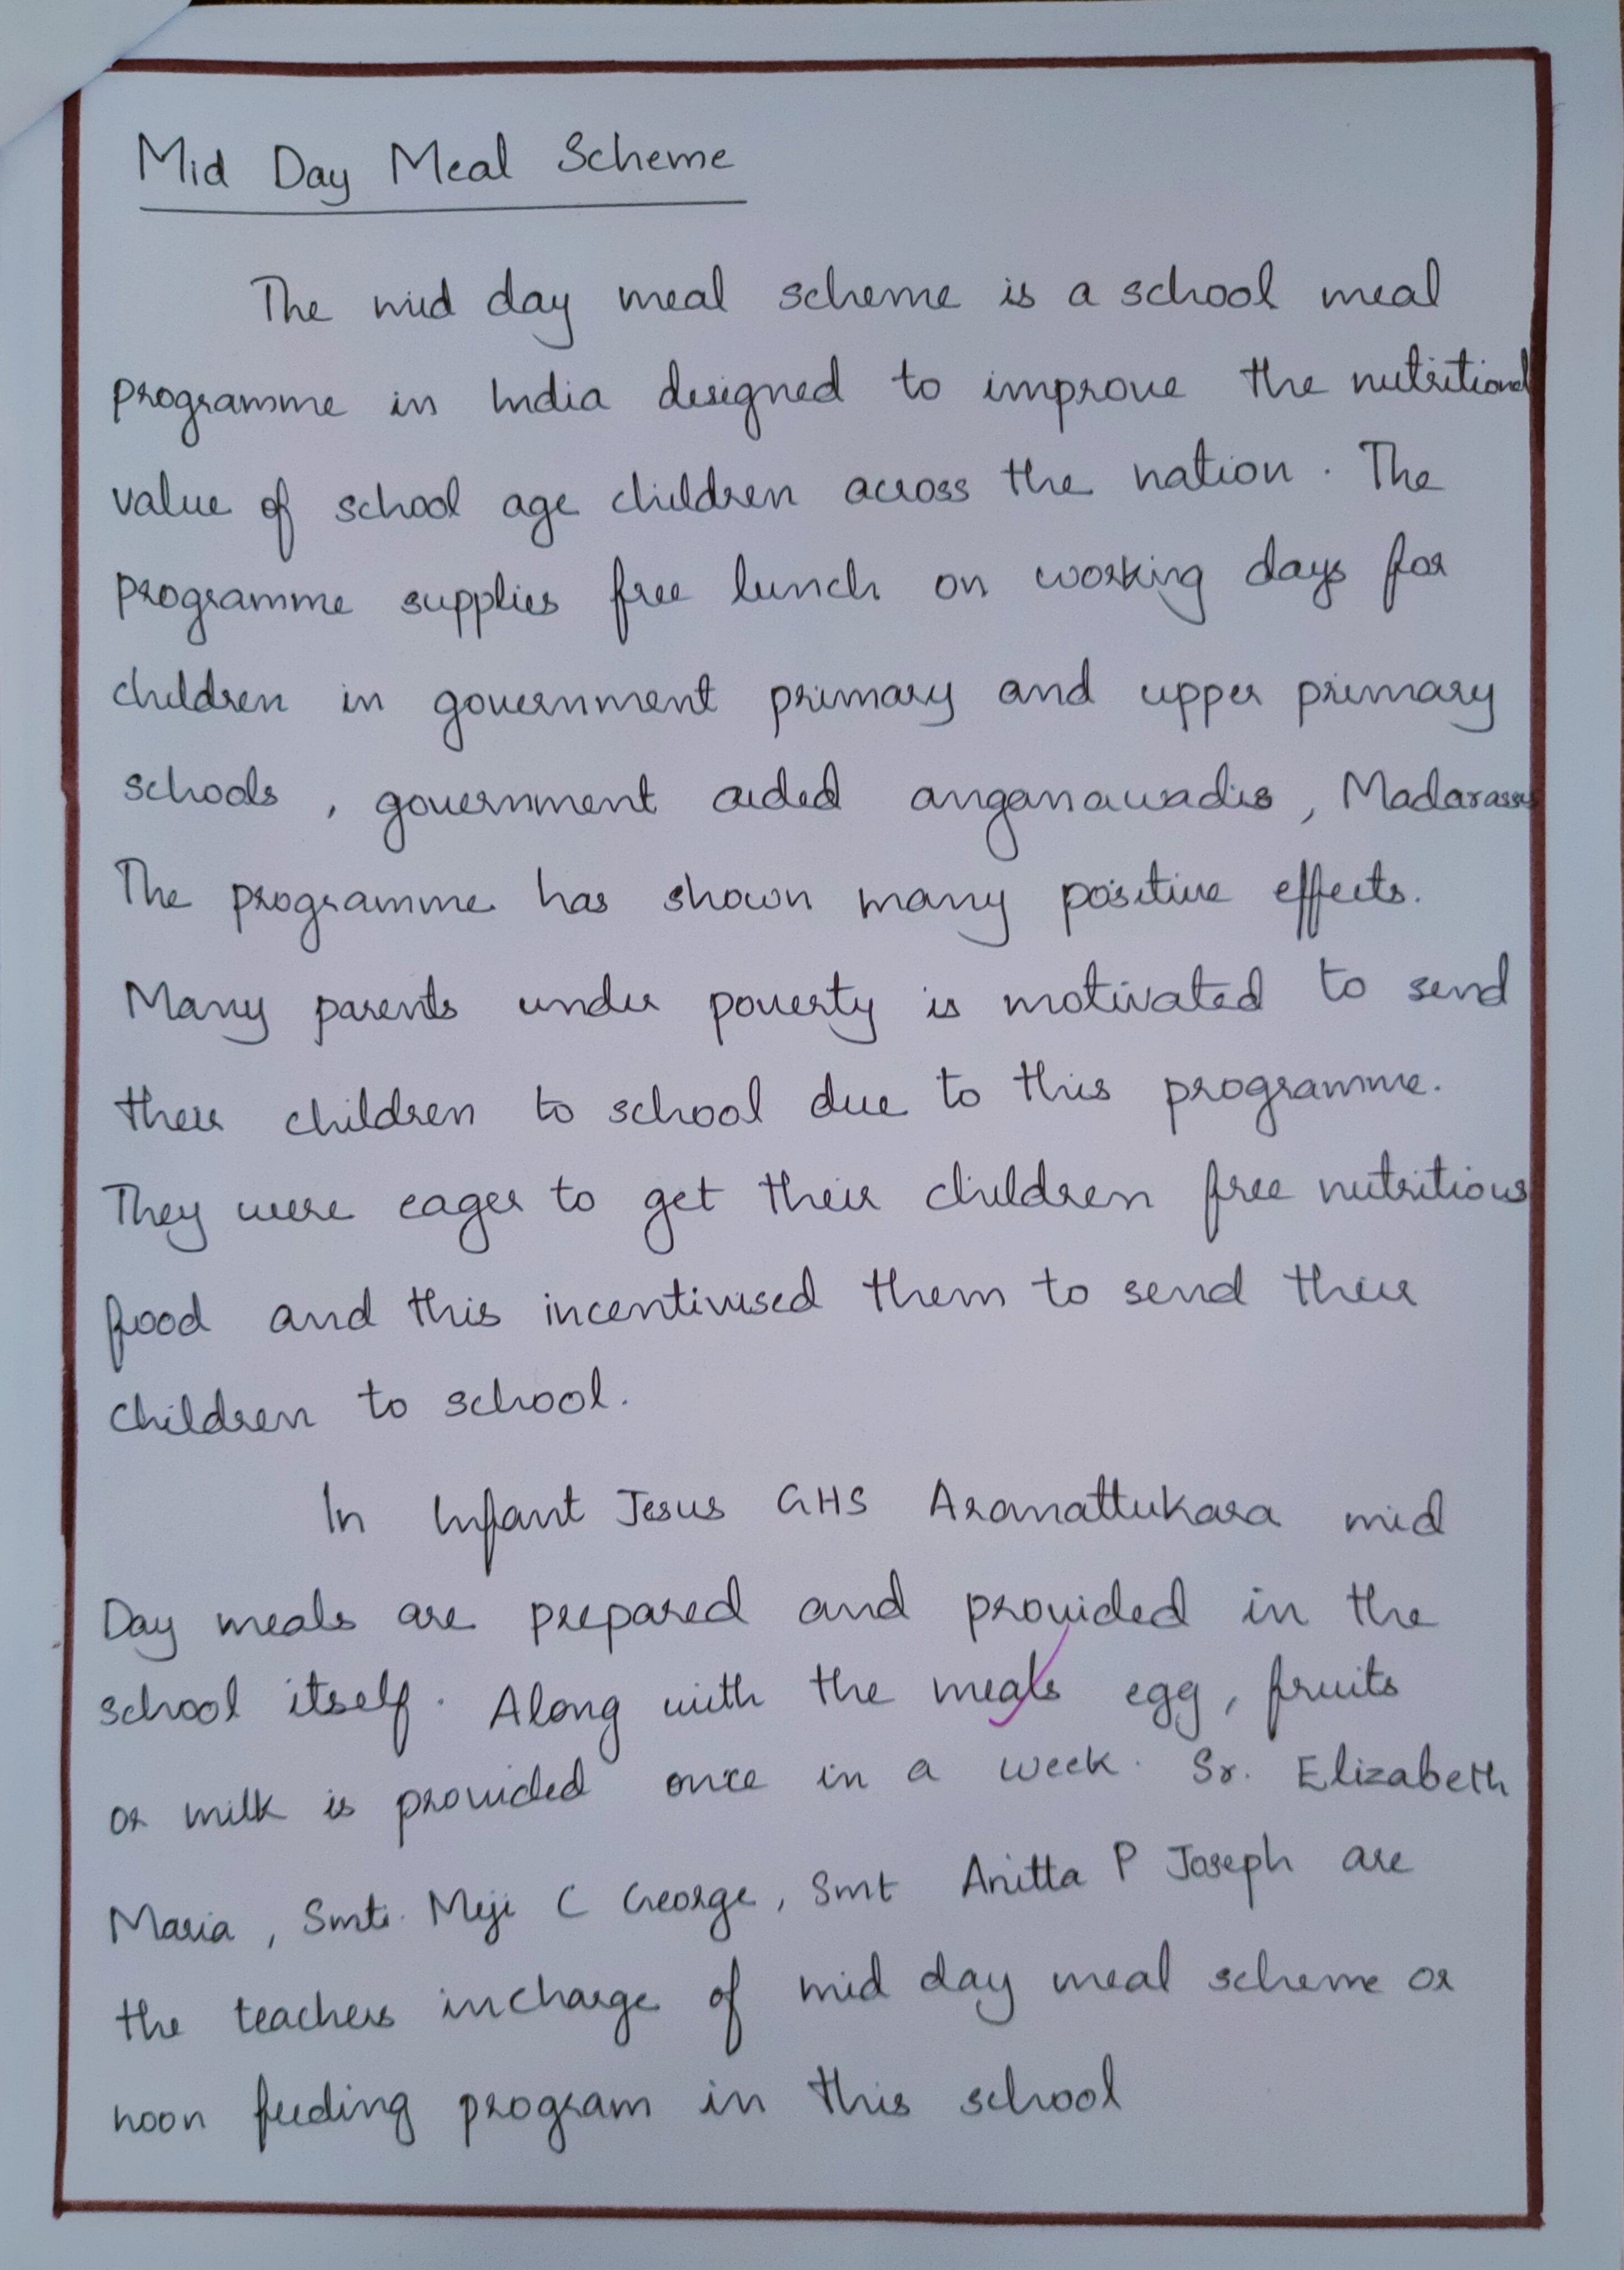 Mid Day Meal Scheme
The mid day meal scheme is a school meal
programme in India designed to improve the nutritional
value of school age children across the nation. The
programme supplies free lunch on working days for
children in government primary and upper primary
schools, government aided anganawadis, Madarasas
The programme has shown many positive effects.
Many parents under poverty is motivated to send
their children to school due to this programme.
They were eager to get their children free nutritious
food and this incentivised them to send their
children to school.
In Infant Jesus GHS Aranattukara mid
Day meals are prepared and provided in the
school itself. Along with the meals egg, fruits
or milk is provided once in a week. Sr. Elizabeth
Maria, Smt. Meji C George, Smt Anitta P Joseph are
the teachers incharge of mid day meal scheme or
noon feeding program in this school